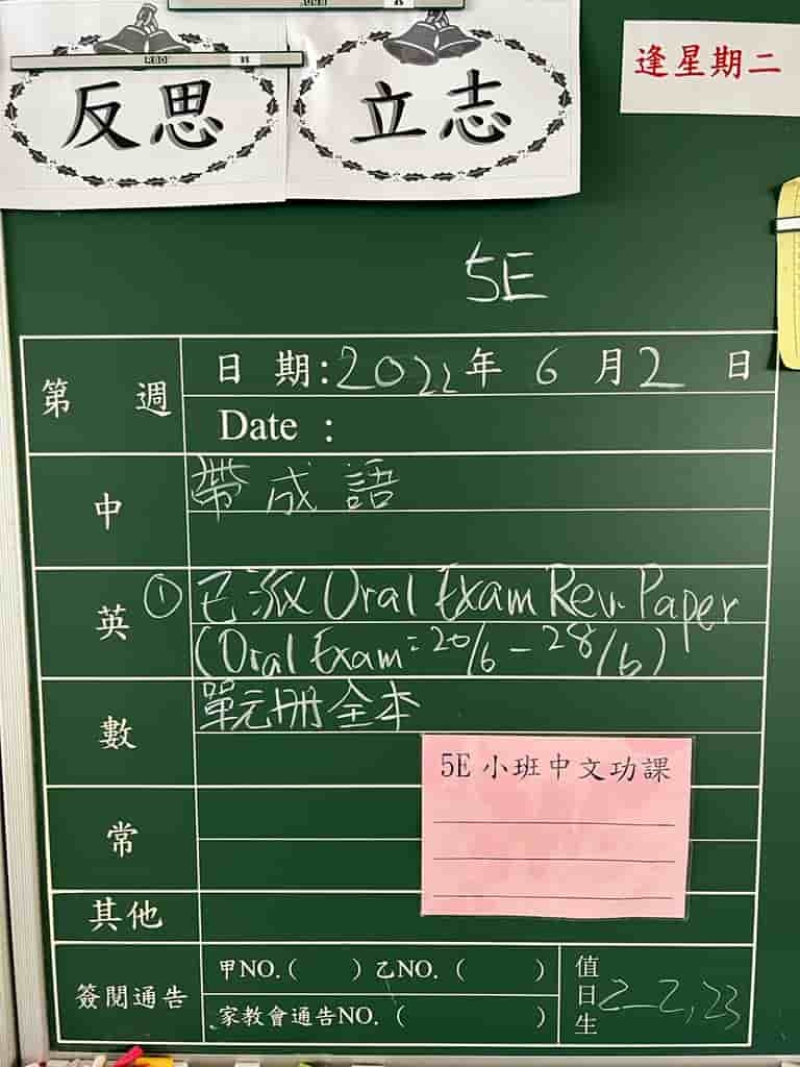 反思
立志
逢星期二
5E
第 週
日 期:2022年 6 月2 日
Date :
中
帶成語
英
① 已派 Oral Exam Rev. Paper
(Oral Exam: 20/6 - 28/6)
數
單元册全本
5E 小班中文功課
常
其他
簽閱通告
甲NO.( ) 乙NO. ( )
家教會通告NO. ( )
值日生
22, 23